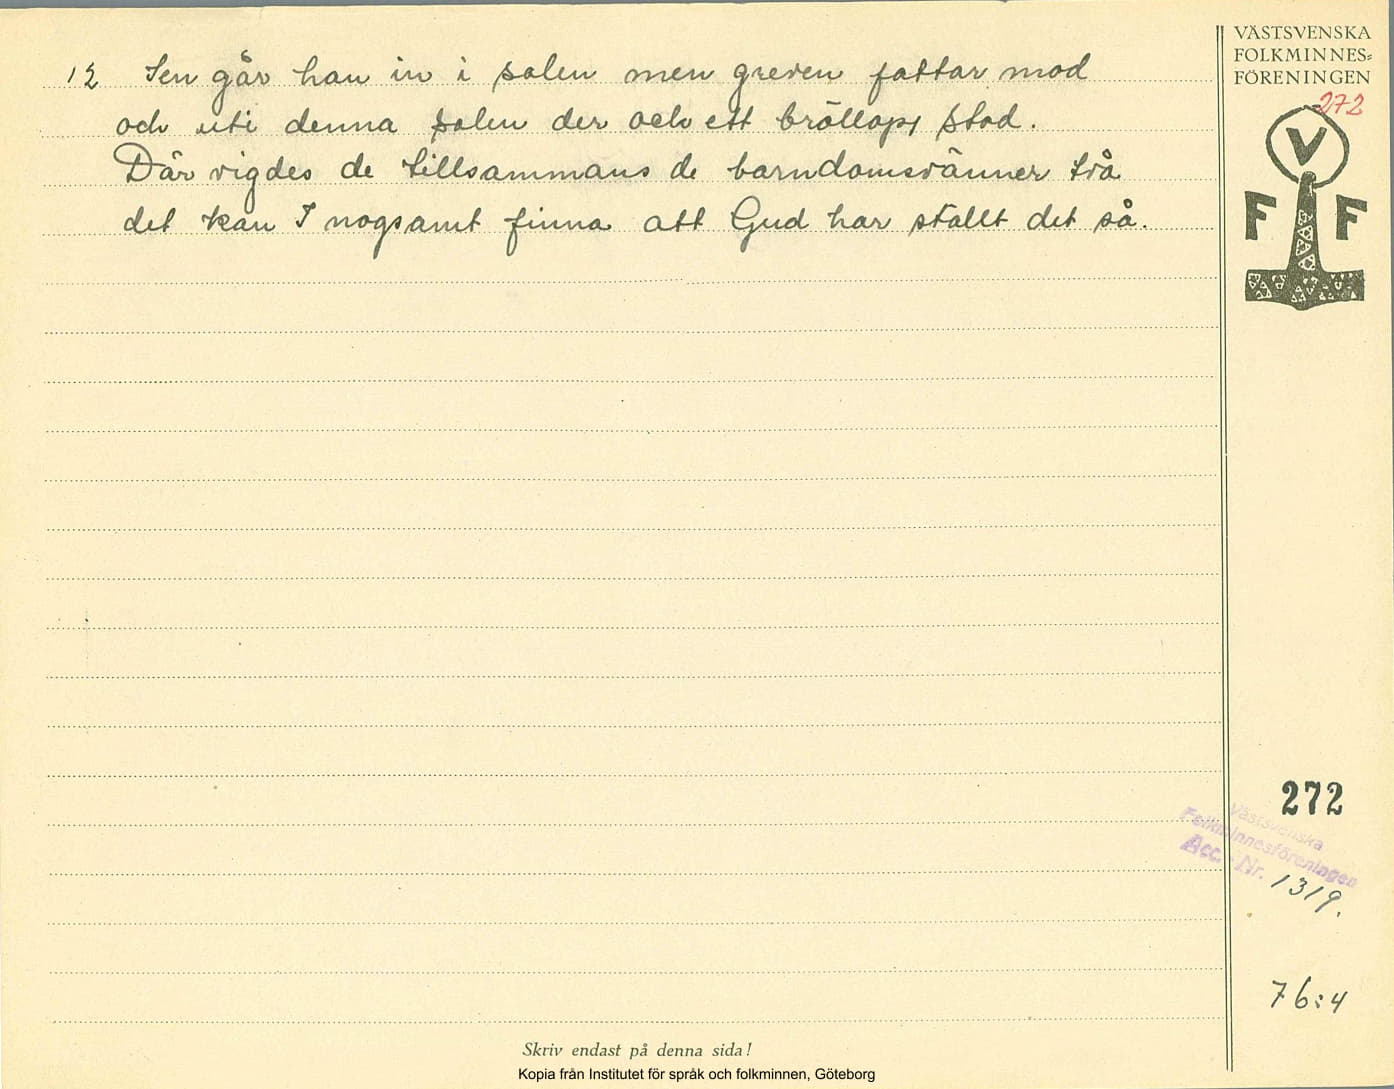 12 Sen går han in i salen men greven fattar mod
och uti denna salen der och ett bröllop stod.
Där vigdes de tillsammans de barndomsvänner två
det kan I nogsamt finna att Gud har ställt det så.
VÄSTSVENSKA
FOLKMINNES=
FÖRENINGEN
272
V
F F
272
Västsvenska
Folkminnesföreningen
Acc. Nr. 1319.
76:4
Skriv endast på denna sida!
Kopia från Institutet för språk och folkminnen, Göteborg